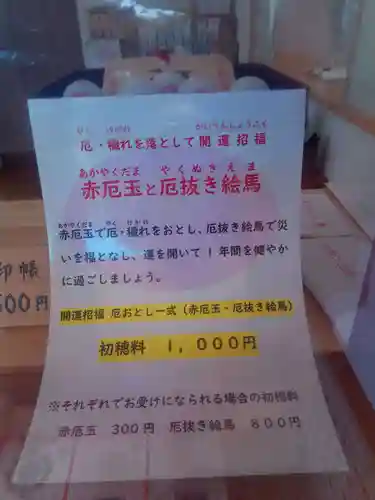 やく けがれ かいうんしょうふく
厄・穢れを落として開運招福
あかやくだま やくぬきえま
赤厄玉と厄抜き絵馬
あかやくだま やく けがれ
赤厄玉で厄・穢れをおとし、厄抜き絵馬で災
いを福となし、運を開いて１年間を健やか
に過ごしましょう。
開運招福 厄おとし一式（赤厄玉・厄抜き絵馬）
初穂料 １，０００円
※それぞれでお受けになられる場合の初穂料
赤厄玉 ３００円 厄抜き絵馬 ８００円
印帳
００円